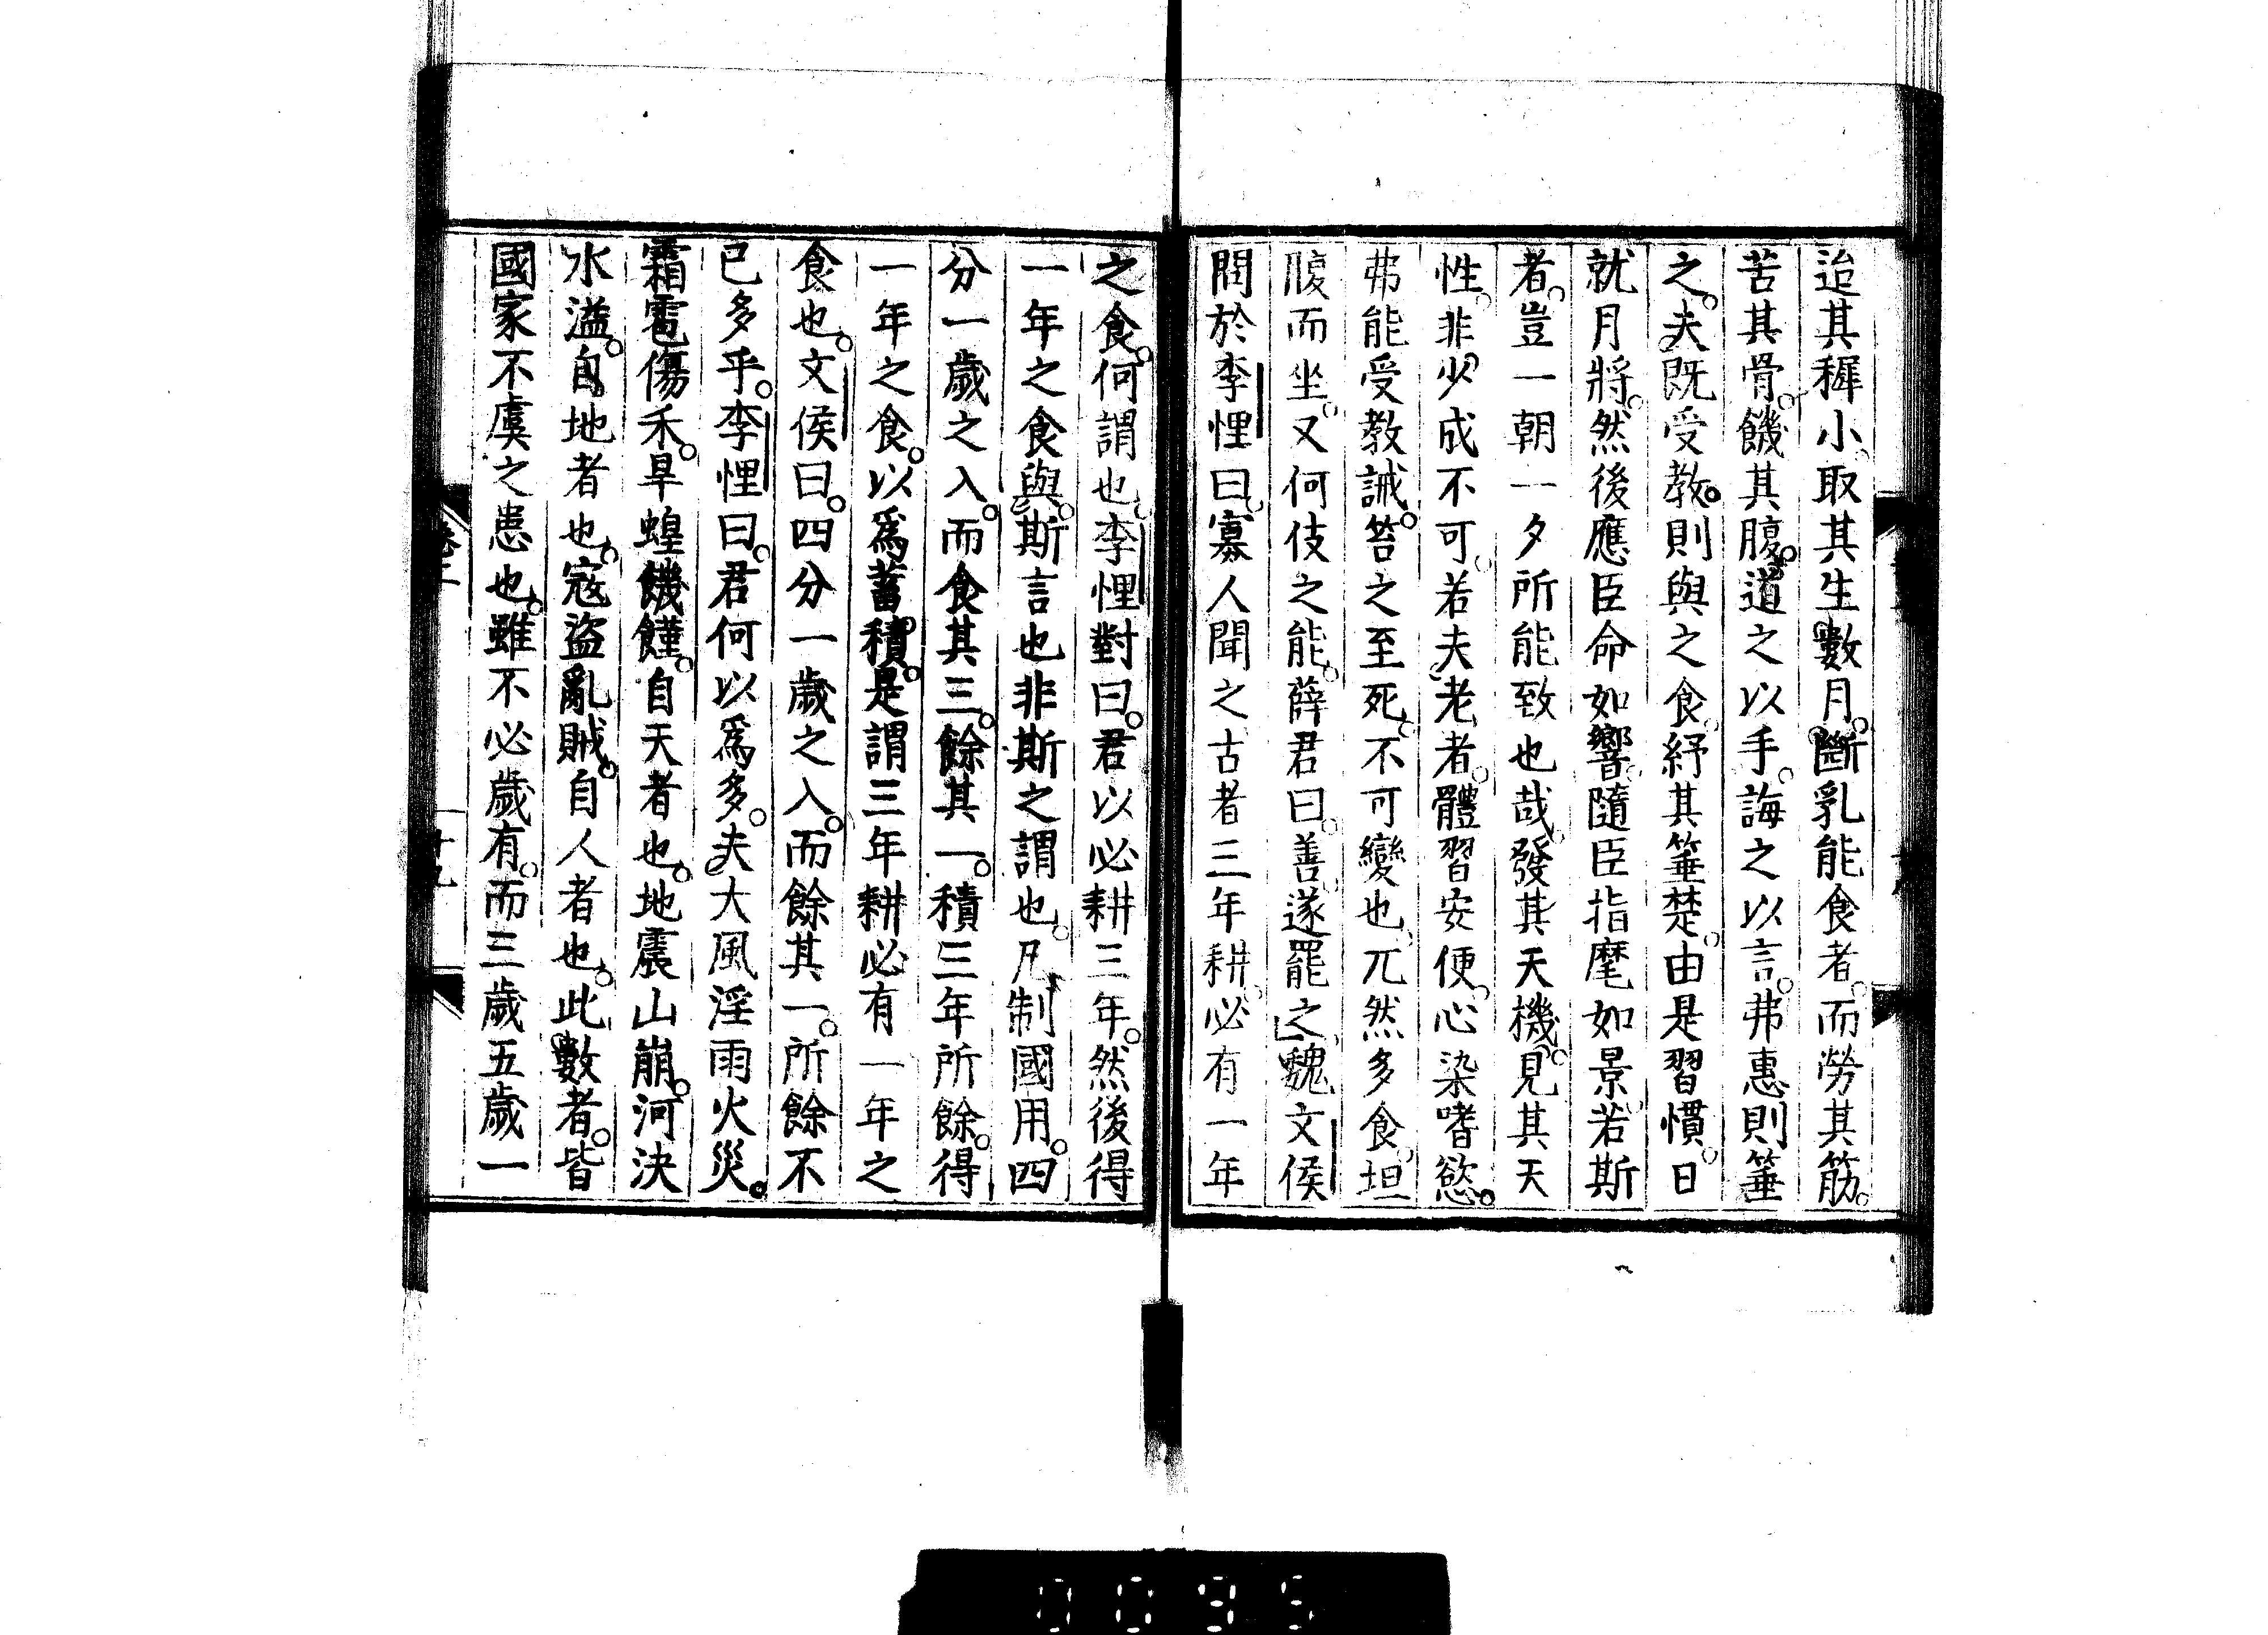 迨其穉小取其生數月斷乳能食者而勞其筋
苦其骨饑其腹道之以手誨之以言弗惠則箠
之夫既受教則與之食紓其箠楚由是習慣日
就月將然後應臣命如響隨臣指麾如景若斯
者豈一朝一夕所能致也哉發其天機見其天
性非少成不可若夫老者體習安便心染嗜慾
弗能受教誡笞之至死不可變也兀然多食坦
腹而坐又何伎之能薛君曰善遂罷之魏文侯
問於李悝曰寡人聞之古者三年耕必有一年
之食何謂也李悝對曰君以必耕三年然後得
一年之食與斯言也非斯之謂也凡制國用四
分一歲之入而食其三餘其一積三年所餘得
一年之食以爲蓄積是謂三年耕必有一年之
食也文侯曰四分一歲之入而餘其一所餘不
已多乎李悝曰君何以爲多夫大風淫雨火災
霜雹傷禾旱蝗饑饉自天者也地震山崩河決
水溢自地者也寇盜亂賊自人者也此數者皆
國家不虞之患也雖不必歲有而三歲五歲一
卷三
十九